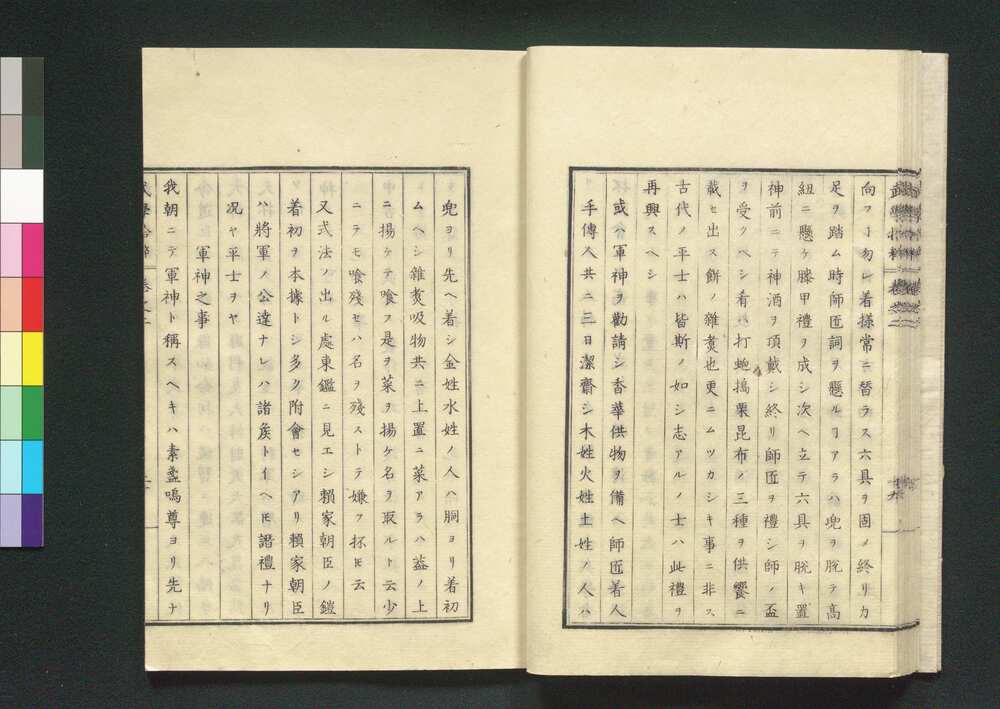 向フヿ勿レ着様常ニ替ラス六具ヲ固メ終リカ
足ヲ踏ム時師匠詞ヲ懸ルヿアラハ兜ヲ脱テ高
紐ニ懸ケ膝甲禮ヲ成シ次ヘ立テ六具ヲ脱キ置
神前ニテ神酒ヲ頂戴シ終リ師匠ヲ禮シ師ノ盃
ヲ受クヘシ肴ハ打蚫搗栗昆布ノ三種ヲ供饗ニ
載セ出ス餅ノ雜煑也更ニムツカシキ事ニ非ス
古代ノ平士ハ皆斯ノ如シ志アルノ士ハ此禮ヲ
再興スヘシ
或ハ軍神ヲ勸請シ香華供物ヲ備ヘ師匠着人
手傳人共ニ三日潔齋シ木姓火姓土姓ノ人ハ
兜ヨリ先ヘ着シ金姓水姓ノ人ハ胴ヨリ着初
ムヘシ雜煑吸物共ニ上置ニ菜アラハ蓋ノ上
ニ揚ケテ喰フ是ヲ菜ヲ揚ケ名ヲ取ルト云少
ニテモ喰殘セハ名ヲ殘ストテ嫌フ抔𪜈云
又式法ノ出ル處東鑑ニ見エシ賴家朝臣ノ鎧
着初ヲ本據トシ多ク附會セシアリ賴家朝臣
ハ將軍ノ公達ナレハ諸矦トイヘ𪜈譖禮ナリ
况ヤ平士ヲヤ
軍神之事
我朝ニテ軍神ト稱スヘキハ素盞嗚尊ヨリ先ナ